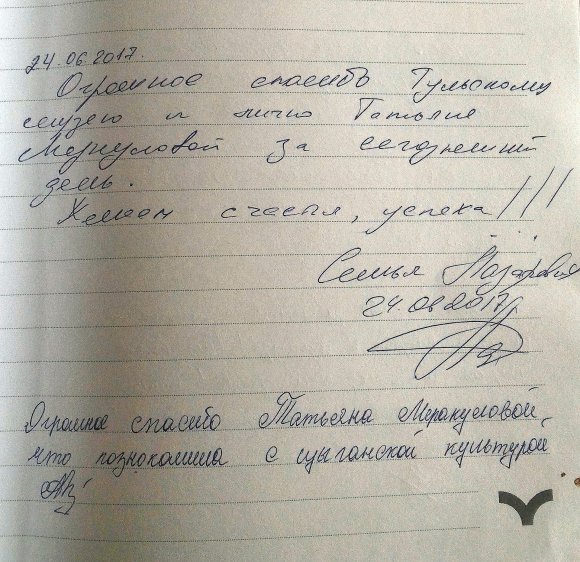 24.06.2017.
Огромное спасибо Тульскому
музею и лично Татьяне
Меркуловой за сегодняшний
день.
Желаем счастья, успеха!!!
Семья
24.06.2017
Огромное спасибо Татьяна Меракуловой,
что познокомила с цыганской культурой